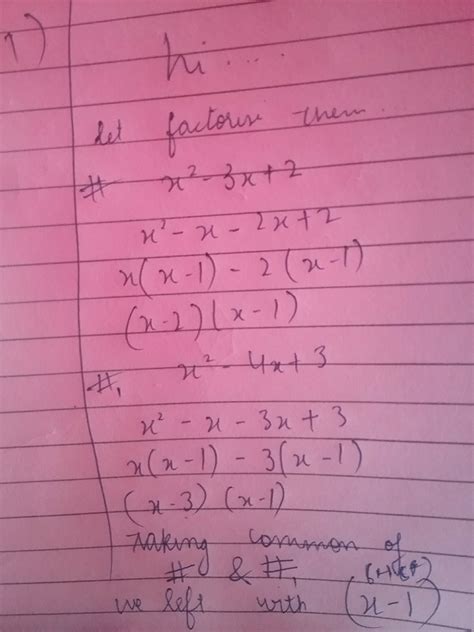 1)
hi....
let factorise them.
# x² - 3x + 2
x² - x - 2x + 2
x(x-1) - 2(x-1)
(x-2)(x-1)
#₁ x² - 4x + 3
x² - x - 3x + 3
x(x-1) - 3(x-1)
(x-3)(x-1)
Taking common of
# & #₁ (HCF)
we left with (x-1)